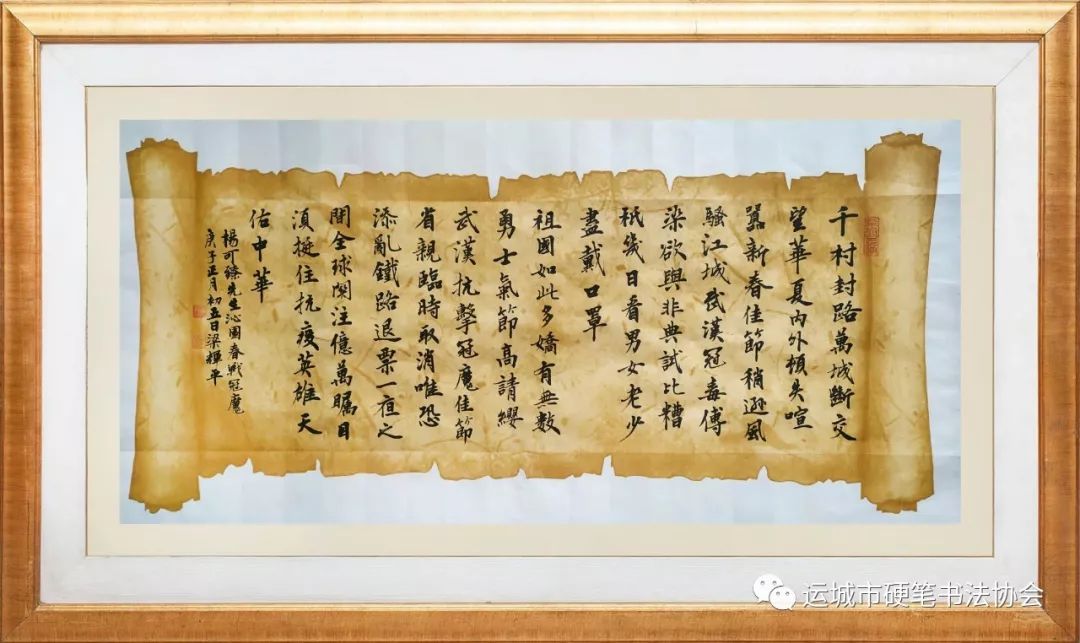 千村封路萬城斷交
望華夏內外頓失喧
囂新春佳節稍遜風
騷江城武漢冠毒傳
染欲與非典試比糟
祇幾日看男女老少
盡戴口罩
祖國如此多嬌有無數
勇士氣節高請纓
武漢抗擊冠魔佳節
省親臨時取消唯恐
添亂鐵路退票一夜之
間全球関注億萬矚目
須挺住抗疫英雄天
佑中華
楊可臻先生沁園春戰冠魔
庚子正月初五日梁輝平
运城市硬笔书法协会